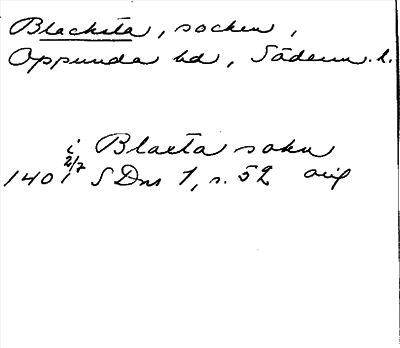 Blacksta, socken,
Oppunda hd, Söderm. l.
i Blacta sokn
1401 2/7 SDns 1, s. 52 orig